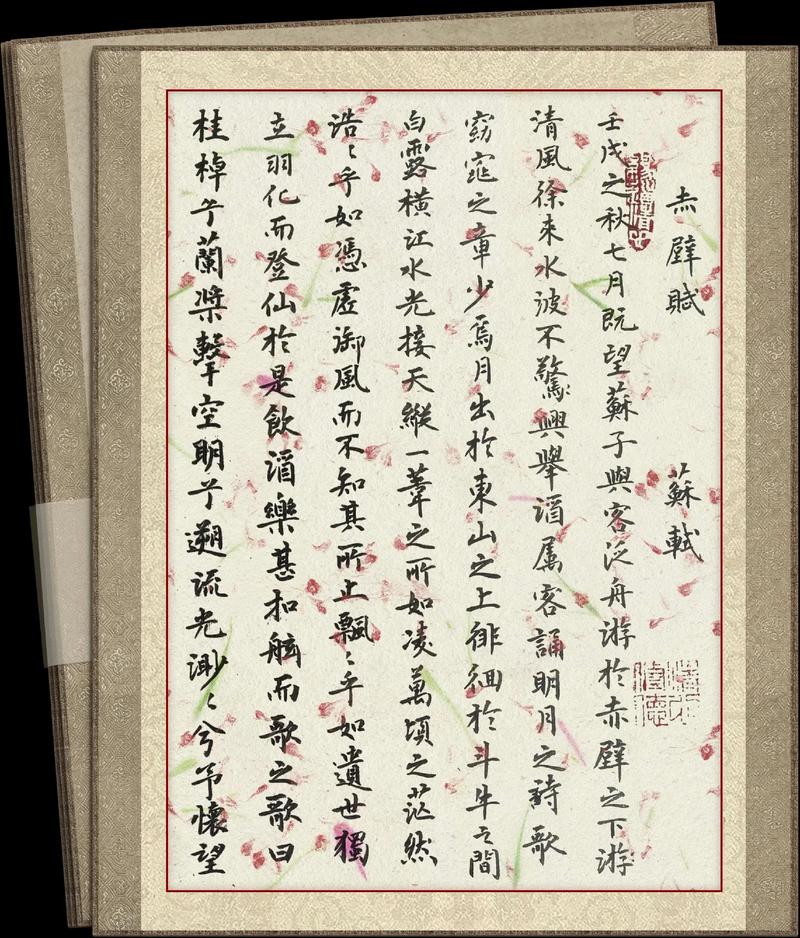 赤壁賦 蘇軾
壬戌之秋七月既望蘇子與客泛舟游於赤壁之下游
清風徐来水波不驚興舉酒属客誦明月之詩歌
窈窕之章少焉月出於東山之上徘徊於斗牛之間
白露橫江水光接天縱一葦之所如凌萬頃之茫然
浩〻乎如憑虛御風而不知其所止飄〻乎如遺世獨
立羽化而登仙於是飲酒樂甚扣舷而歌之歌曰
桂棹兮蘭槳擊空明兮遡流光渺〻兮予懷望